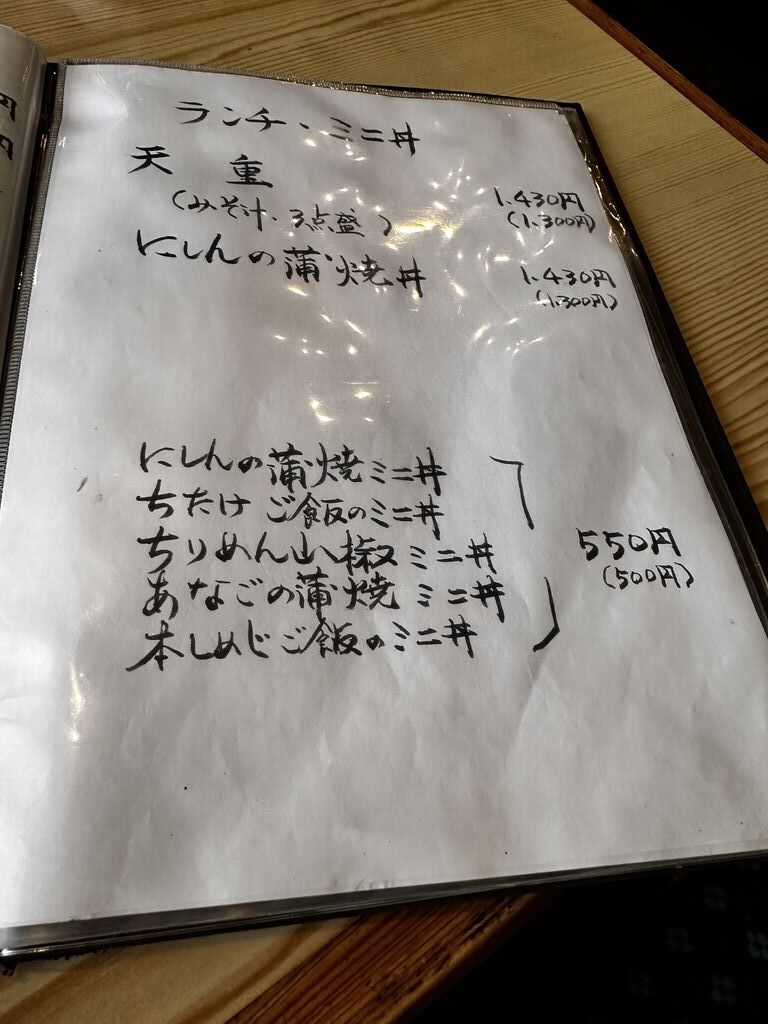 ランチ・ミニ丼
天重 1,430円
(みそ汁・3点盛) (1,300円)
にしんの蒲焼丼 1,430円
(1,300円)
にしんの蒲焼ミニ丼
ちたけご飯のミニ丼
ちりめん山椒ミニ丼 550円
あなごの蒲焼ミニ丼 (500円)
本しめじご飯のミニ丼
円
円